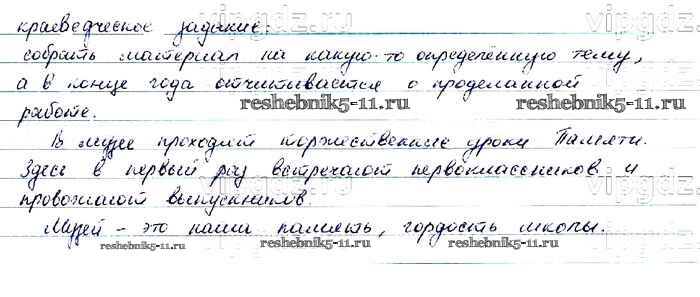 краеведческое задание:
собрать материал на какую-то определённую тему,
а в конце года отчитывается о проделанной
работе.
В музее проходят торжественные уроки Памяти.
Здесь в первый раз встречают первоклассников и
провожают выпускников.
Музей - это наша память, гордость школы.
vipgdz.ru
vipgdz.ru
vipgdz.ru
reshebnik5-11.ru
reshebnik5-11.ru
reshebnik5-11.ru
reshebnik5-11.ru
reshebnik5-11.ru